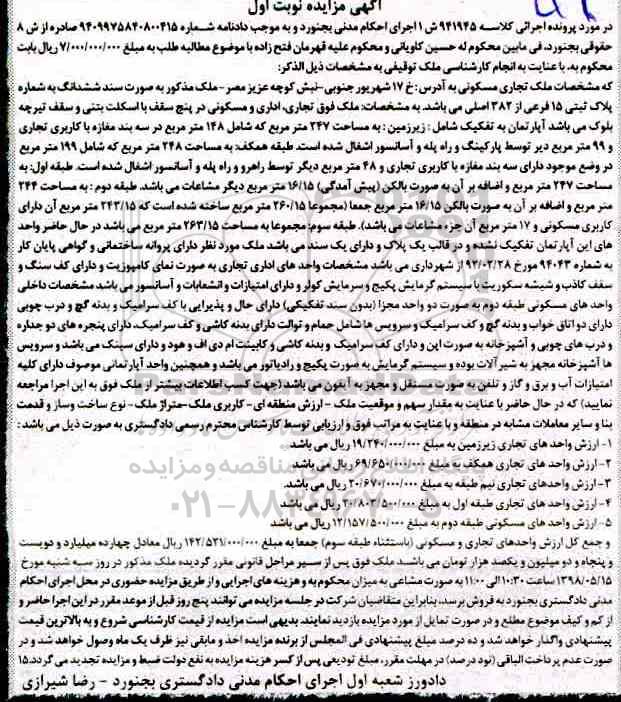 آگهی مزایده نوبت اول
در مورد پرونده اجرائی کلاسه ۹۴۱۹۴۵ ش ۱ اجرای احکام مدنی بجنورد و به موجب دادنامه شماره ۹۴۰۹۹۷۵۸۴۰۸۰۰۴۱۵ صادره از ش ۸
حقوقی بجنورد، فی مابین محکوم له حسین کاویانی و محکوم علیه قهرمان فتح زاده با موضوع مطالبه طلب به مبلغ ۷/۰۰۰/۰۰۰/۰۰۰ ریال بابت
محکوم به، با عنایت به انجام کارشناسی ملک توقیفی به مشخصات ذیل الذکر:
که مشخصات ملک تجاری مسکونی به آدرس: خ ۱۷ شهریور جنوبی-نبش کوچه عزیز مصر-ملک مذکور به صورت سند ششدانگ به شماره
پلاک ثبتی ۱۵ فرعی از ۳۸۲ اصلی می باشد. به مشخصات: ملک فوق تجاری، اداری و مسکونی در پنج سقف با اسکلت بتنی و سقف تیرچه
بلوک می باشد آپارتمان به تفکیک شامل: زیرزمین: به مساحت ۲۴۷ متر مربع که شامل ۱۴۸ متر مربع در سه بند مغازه با کاربری تجاری
و ۹۹ متر مربع دیر توسط پارکینگ و راه پله و آسانسور اشغال شده است. طبقه همکف: به مساحت ۲۴۸ متر مربع که شامل ۱۹۹ متر مربع
در وضع موجود دارای سه بند مغازه با کاربری تجاری و ۴۸ متر مربع دیگر توسط راهرو و راه پله و آسانسور اشغال شده است. طبقه اول: به
مساحت ۲۴۷ متر مربع و اضافه بر آن به صورت بالکن (پیش آمدگی) ۱۶/۱۵ متر مربع دیگر مشاعات می باشد. طبقه دوم: به مساحت ۲۴۴
متر مربع و اضافه بر آن به صورت بالکن ۱۶/۱۵ متر مربع جمعا (مجموعا ۲۶۰/۱۵ متر مربع ساخته شده است که ۲۴۳/۱۵ متر مربع آن دارای
کاربری مسکونی و ۱۷ متر مربع آن جزء مشاعات می باشد). طبقه سوم: مجموعا به مساحت ۲۶۳/۱۵ متر مربع می باشد در حال حاضر واحد
های این آپارتمان تفکیک نشده و در قالب یک پلاک و دارای یک سند می باشد ملک مورد نظر دارای پروانه ساختمانی و گواهی پایان کار
به شماره ۹۴۰۴۳ مورخ ۹۳/۰۲/۲۸ از شهرداری می باشد مشخصات واحد های اداری تجاری به صورت نمای کامپوزیت و دارای کف سنگ و
سقف کاذب و شیشه سکوریت با سیستم گرمایش پکیج و سرمایش کولر و دارای امتیازات و انشعابات و آسانسور می باشد مشخصات داخلی
واحد های مسکونی طبقه دوم به صورت دو واحد مجزا (بدون سند تفکیکی) دارای حال و پذیرایی با کف سرامیک و بدنه گچ و درب چوبی
دارای دو اتاق خواب و بدنه گچ و کف سرامیک و سرویس ها شامل حمام و توالت دارای بدنه کاشی و کف سرامیک، دارای پنجره های دو جداره
و درب های چوبی و آشپزخانه به صورت اپن و دارای کف سرامیک و بدنه کاشی و کابینت ام دی اف و هود و دارای سینک می باشد و سرویس
ها آشپزخانه مجهز به شیر آلات بوده و سیستم گرمایش به صورت پکیج و رادیاتور می باشد و همچنین واحد آپارتمانی موصوف دارای کلیه
امتیازات آب و برق و گاز و تلفن به صورت مستقل و مجهز به آیفون می باشد (جهت کسب اطلاعات بیشتر از ملک فوق به این اجرا مراجعه
نمایید) که در حال حاضر با عنایت به مقدار سهم و موقعیت ملک - ارزش منطقه ای- کاربری ملک-متراژ ملک- نوع ساخت وساز و قدمت
بنا و سایر معاملات مشابه در منطقه و با عنایت به مراتب فوق و ارزیابی توسط کارشناس محترم رسمی دادگستری به صورت ذیل می باشد:
۱- ارزش واحد های تجاری زیرزمین به مبلغ ۱۹/۲۴۰/۰۰۰/۰۰۰ ریال می باشد
۲- ارزش واحد های تجاری همکف به مبلغ ۶۹/۶۵۰/۰۰۰/۰۰۰ ریال می باشد.
۳- ارزش واحد های تجاری نیم طبقه به مبلغ ۲۰/۶۷۰/۰۰۰/۰۰۰ ریال می باشد.
۴- ارزش واحد های تجاری طبقه اول به مبلغ ۲۰/۸۰۳/۵۰۰/۰۰۰ ریال می باشد
۵- ارزش واحد های مسکونی طبقه دوم به مبلغ ۱۲/۱۵۷/۵۰۰/۰۰۰ ریال می باشد
و جمع کل ارزش واحدهای تجاری و مسکونی (باستثناء طبقه سوم) جمعا به مبلغ ۱۴۲/۵۲۱/۰۰۰/۰۰۰ ریال معادل چهارده میلیارد و دویست
و پنجاه و دو میلیون و یکصد هزار تومان می باشد ملک فوق پس از سیر مراحل قانونی مقرر گردیده ملک مذکور در روز سه شنبه مورخ
۱۳۹۸/۰۵/۱۵ ساعت ۱۰:۳۰ الی ۱۱:۰۰ به صورت مشاعی به میزان محکوم به و هزینه های اجرایی و از طریق مزایده حضوری در محل اجرای احکام
مدنی دادگستری بجنورد به فروش برسد، بنابراین متقاضیان شرکت در جلسه مزایده می توانند پنج روز قبل از موعد مقرر در این اجرا حاضر و
از کم و کیف موضوع مطلع و در صورت تمایل از مورد مزایده بازدید نمایند. بدیهی است مزایده از قیمت کارشناسی شروع و به بالاترین قیمت
پیشنهادی واگذار خواهد شد و ده درصد مبلغ پیشنهادی فی المجلس از برنده مزایده اخذ و مابقی نیز ظرف یک ماه وصول خواهد شد و در
صورت عدم پرداخت الباقی (نود درصد) در مهلت مقرر، مبلغ تودیعی پس از کسر هزینه مزایده به نفع دولت ضبط و مزایده تجدید می گردد. ۱۵
دادورز شعبه اول اجرای احکام مدنی دادگستری بجنورد - رضا شیرازی
پایگاه اطلاع رسانی مناقصه و مزایده
۰۲۱-۸۸۳۴۹۶۷۰-۵